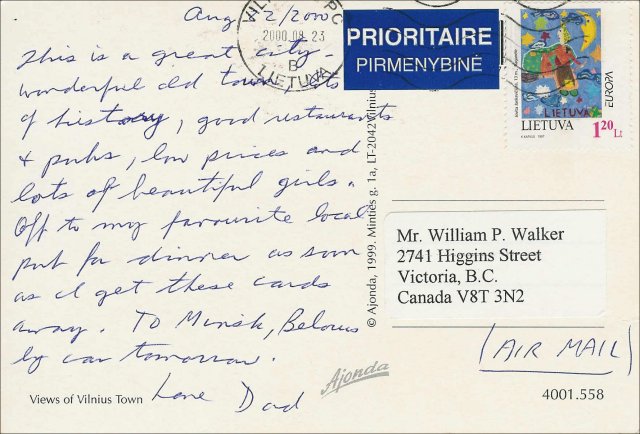 Aug 22/2000
This is a great city -
wonderful old town, lots
of history, good restaurants
& pubs, low prices and
lots of beautiful girls.
Off to my favourite local
pub for dinner as soon
as I get these cards
away. To Minsk, Belarus
by car tomorrow.
Love Dad
Views of Vilnius Town
2000.08.23
B
LIETUVA
PRIORITAIRE
PIRMENYBINĖ
LIETUVA
EUROPA
LIETUVA
1.20 Lt
© Ajonda, 1999. Minties g. 1a, LT-2042 Vilnius
Mr. William P. Walker
2741 Higgins Street
Victoria, B.C.
Canada V8T 3N2
(AIR MAIL)
Ajonda
4001.558